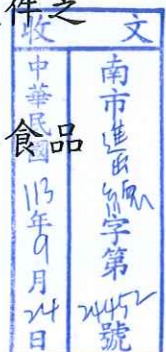 件之
食品
收文
南市進出編字第24452號
中華民國113年9月24日